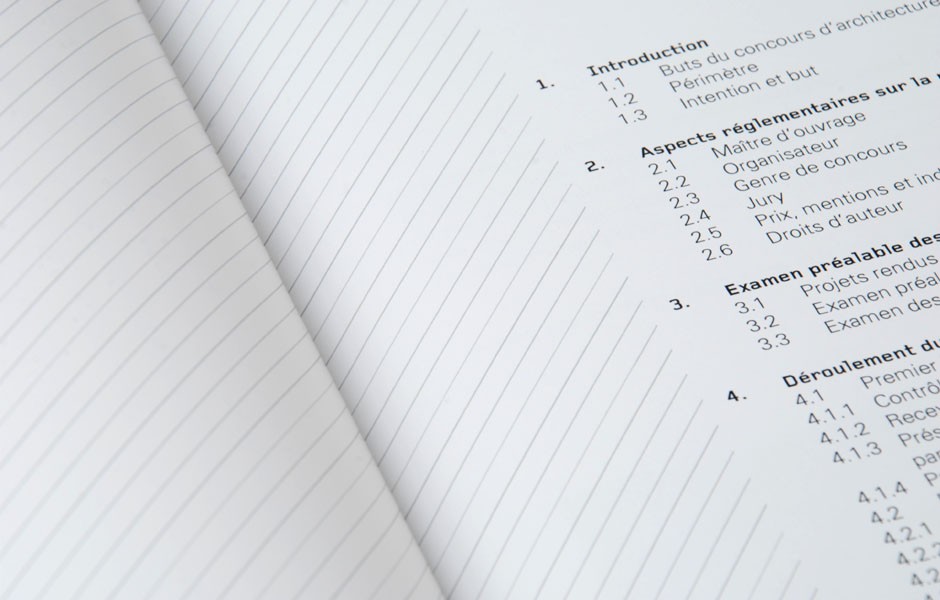 1. Introduction
1.1 Buts du concours d'architecture
1.2 Périmètre
1.3 Intention et but
2. Aspects réglementaires sur la
2.1 Maître d'ouvrage
2.2 Organisateur
2.3 Genre de concours
2.4 Jury
2.5 Prix, mentions et
2.6 Droits d'auteur
3. Examen préalable des
3.1 Projets rendus
3.2 Examen
3.3 Examen des
4. Déroulement du
4.1 Premier
4.1.1
4.1.2
4.1.3
4.1.4
4.2
4.2.1